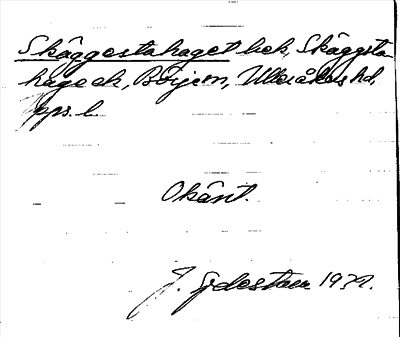 Skäggestahaget bek, Skäggsta
hage ek, Börje sn, Ulleråkers hd,
Upps. l.
Okänt.
J. Sjdestam 1939.